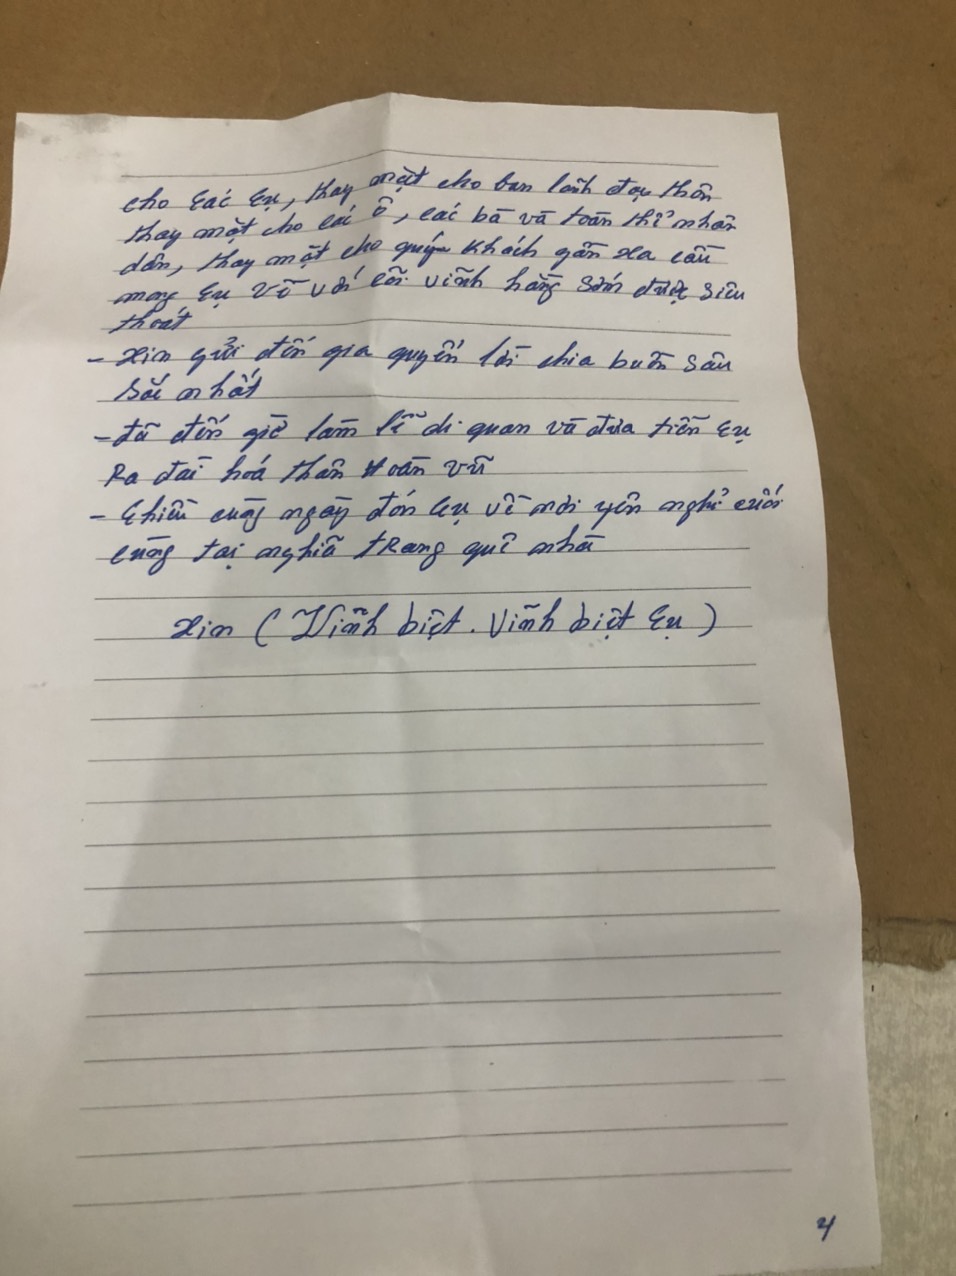 cho các cụ, thay mặt cho ban lãnh đạo thôn
thay mặt cho các ô, các bà và toàn thể nhân
dân, thay mặt cho quý khách gần xa cầu
mong cụ về với cõi vĩnh hằng sớm được siêu
thoát
- Xin gửi đến gia quyến lời chia buồn sâu
sắc nhất
- đã đến giờ làm lễ di quan và đưa tiễn cụ
Ra đài hoá thân Hoàn vũ
- Chiều cùng ngày đón cụ về nơi yên nghỉ cuối
cùng tại nghĩa trang quê nhà
Xin (Vĩnh biệt. Vĩnh biệt cụ)
4